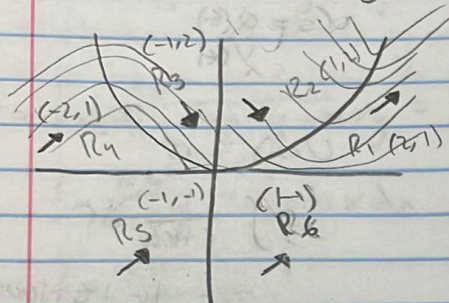 (-1,2)
R3 R2 (1,2)
(-2,1)
R4 R1 (2,1)
(-1,-1) (1-1)
R5 R6